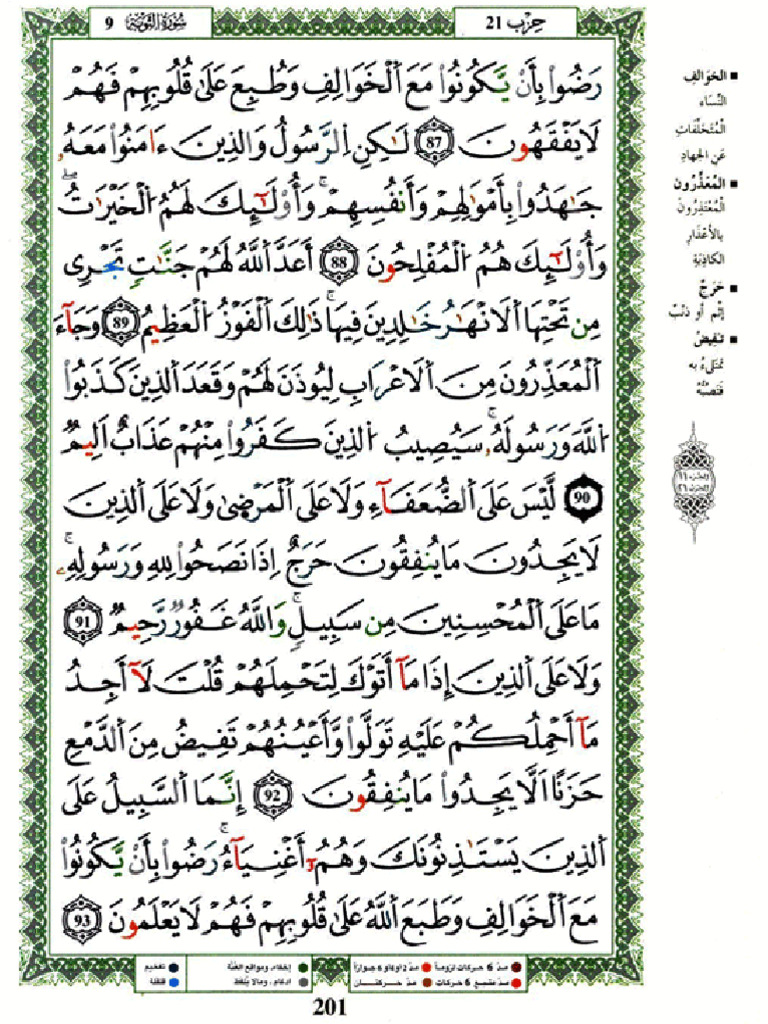 حِزْب 21
سُورَةُ التَّوْبَةِ 9
رَضُوا۟ بِأَنْ يَّكُونُوا۟ مَعَ اَ۬لْخَوَالِفِ وَطُبِعَ عَلَىٰ قُلُوبِهِمْ فَهُمْ
لَا يَفْقَهُونَ 87 لَٰكِنِ اِ۬لرَّسُولُ وَالذِينَ ءَامَنُوا۟ مَعَهُۥ
جَٰهَدُوا۟ بِأَمْوَٰلِهِمْ وَأَنفُسِهِمْ وَأُو۟لَٰٓئِكَ لَهُمُ اُ۬لْخَيْرَٰتُ
وَأُو۟لَٰٓئِكَ هُمُ اُ۬لْمُفْلِحُونَ 88 أَعَدَّ اَ۬للَّهُ لَهُمْ جَنَّٰتٍ تَجْرِى
مِن تَحْتِهَا اَ۬لَانْهَٰرُ خَٰلِدِينَ فِيهَا ذَٰلِكَ اَ۬لْفَوْزُ اُ۬لْعَظِيمُ 89 وَجَآءَ
اَ۬لْمُعَذِّرُونَ مِنَ اَ۬لَاعْرَابِ لِيُوذَنَ لَهُمْ وَقَعَدَ اَ۬لذِينَ كَذَبُوا۟
اُ۬للَّهَ وَرَسُولَهُۥ سَيُصِيبُ اُ۬لذِينَ كَفَرُوا۟ مِنْهُمْ عَذَابٌ اَلِيمٌ
90 لَّيْسَ عَلَى اَ۬لضُّعَفَآءِ وَلَا عَلَى اَ۬لْمَرْضَىٰ وَلَا عَلَى اَ۬لذِينَ
لَا يَجِدُونَ مَا يُنفِقُونَ حَرَجٌ اِذَا نَصَحُوا۟ لِلهِ وَرَسُولِهِۦ
مَا عَلَى اَ۬لْمُحْسِنِينَ مِن سَبِيلٍ وَاللَّهُ غَفُورٌ رَّحِيمٌ 91
وَلَا عَلَى اَ۬لذِينَ إِذَا مَآ أَتَوْكَ لِتَحْمِلَهُمْ قُلْتَ لَآ أَجِدُ
مَآ أَحْمِلُكُمْ عَلَيْهِ تَوَلَّوا۟ وَّأَعْيُنُهُمْ تَفِيضُ مِنَ اَ۬لدَّمْعِ
حَزَنًا اَلَّا يَجِدُوا۟ مَا يُنفِقُونَ 92 إِنَّمَا اَ۬لسَّبِيلُ عَلَى
اَ۬لذِينَ يَسْتَٰذِنُونَكَ وَهُمُۥٓ أَغْنِيَآءُ رَضُوا۟ بِأَنْ يَّكُونُوا۟
مَعَ اَ۬لْخَوَالِفِ وَطَبَعَ اَ۬للَّهُ عَلَىٰ قُلُوبِهِمْ فَهُمْ لَا يَعْلَمُونَ 93
الخَوَالِفِ
النِّسَاءِ
المُتَخَلِّفَاتِ
عَنِ الجِهَادِ
المُعَذِّرُونَ
المُعْتَذِرُونَ
بالأَعْذَارِ
الكَاذِبَةِ
حَرَجٌ
إِثْمٌ أَو ذَنْبٌ
تَفِيضُ
تَمْتَلِىءُ بِه
فَتَصُبُّهُ
مدّ 6 حركات لزوماً
مدّ 2 او 4 او 6 جوازاً
إخفاء، ومواقع الغنّة
تفخيم
مدّ مشبع 6 حركات
مدّ حركتـان
إدغام، ومالا يُلفظ
قلقلة
201